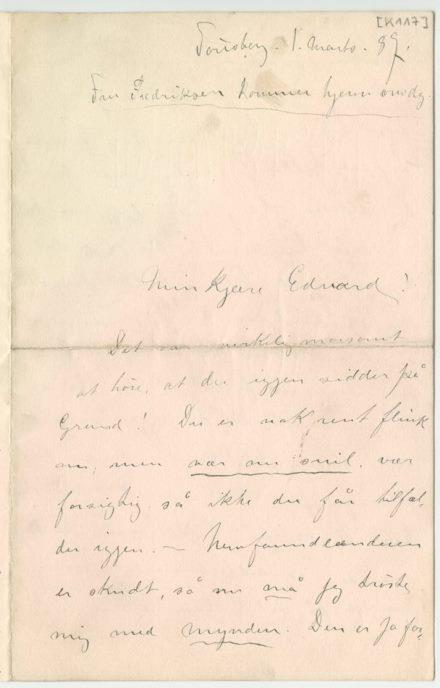 [K117]
Tönsberg. 1. Marts. 89.
Fru Fredriksen kommer hjem onsdg.
Min Kjære Edvard!
Det var virkelig morsomt
at höre, at du igjen sidder på
Grund! Du er nok rent flink
nu, men vær nu snil, vær
forsigtig så ikke du får tilfæl.
du igjen. — Newfoundlænderen
er skudt, så nu må jeg tröste
mig med mynden. Den er ja for,